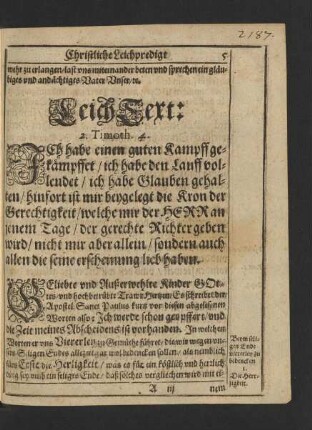 2187.
Christliche Leichpredigt 5
mehr zu erlangen/last vns miteinander beten vnd sprechen ein gläu-
biges vnd andächtiges Vater Vnser/ꝛc.
Leich Text:
2. Timoth. 4.
ICh habe einen guten Kampff ge-
kämpffet/ich habe den Lauff vol-
lendet/ich habe Glauben gehal-
ten/hinfort ist mir beygelegt die Kron der
Gerechtigkeit/welche mir der HERR an
jenem Tage/der gerechte Richter geben
wird/nicht mir aber allein/sondern auch
allen die seine erscheinung lieb haben.
GEliebte vnd Außerwehlte Kinder GOt-
tes/vnd hochbetrübte Es schreibet der
Apostel Sanct Paulus kurtz vor diesen abgelesenen
Worten also: Ich werde schon geopffert/vnd
die Zeit meines Abscheidens ist vorhanden. In welchen
Worten er vns Viererley zu Gemüthe führet: die wir wegen vn-
sers Seligen Endes allezeit wol bedencken sollen/als nemlich
zum Erste die Herligkeit/ was es für ein köstlich vnd herrlich
ding sey vmb ein seliges Ende/daß solches verglichen wird mit ei-
Bey vnserm seli-
gen Ende
viererley zu
bedencken
1.
Die Herr-
ligkeit.
A iij nem